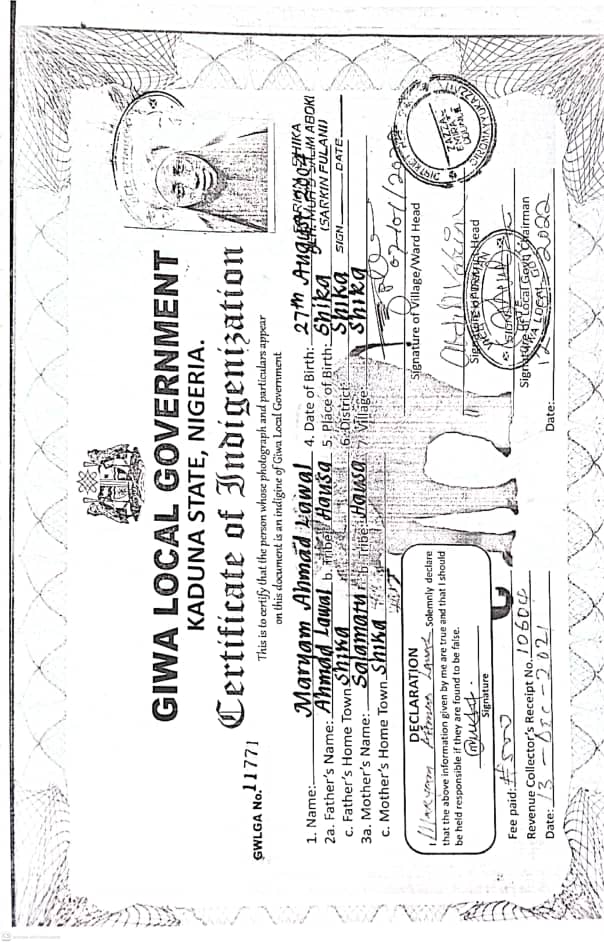 GIWA LOCAL GOVERNMENT
KADUNA STATE, NIGERIA.
Certificate of Indigenization
This is to certify that the person whose photograph and particulars appear
on this document is an indigine of Giwa Local Government
GWLGA No. 11771
1. Name: Maryam Ahmad Lawal 4. Date of Birth: 27th August
2a. Father's Name: Ahmad Lawal b. Tribe: Hausa 5. Place of Birth: Shika
c. Father's Home Town Shika 6. District: Shika
3a. Mother's Name: Salamatu b. Tribe: Hausa 7. Village: Shika
c. Mother's Home Town Shika
SHIKA
SALIM ABOKI
(SARKIN FULANI)
SIGN DATE
DECLARATION
I Maryam Solemnly declare
that the above information given by me are true and that I should
be held responsible if they are found to be false.
Signature
Fee paid:
Revenue Collector's Receipt No.
Date: 13-DEC-2021
Signature of Village/Ward Head
Signature of District Head
Signature of Local Govt Chairman
Date: 2022